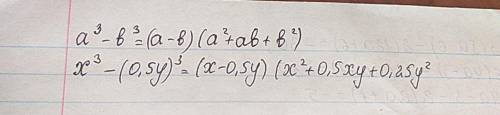 a³-b³=(a-b)(a²+ab+b²)
x³-(0,5y)³=(x-0,5y)(x²+0,5xy+0,25y²